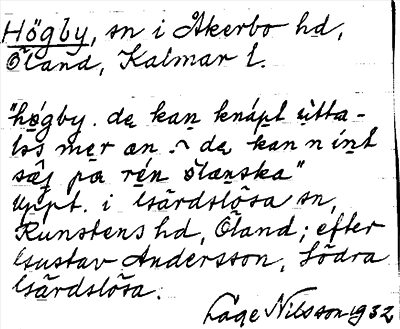 Högby, sn i Åkerbo hd,
Öland, Kalmar l.
"hø̀gby. dɑ kan knápt ùtta-
las mer än. ~ dɑ kan n ínt
säj pɑ rén ölänska"
uppt. i Gärdslösa sn,
Runstens hd, Öland; efter
Gustav Andersson, Södra
Gärdslösa.
Åge Nilsson 1932